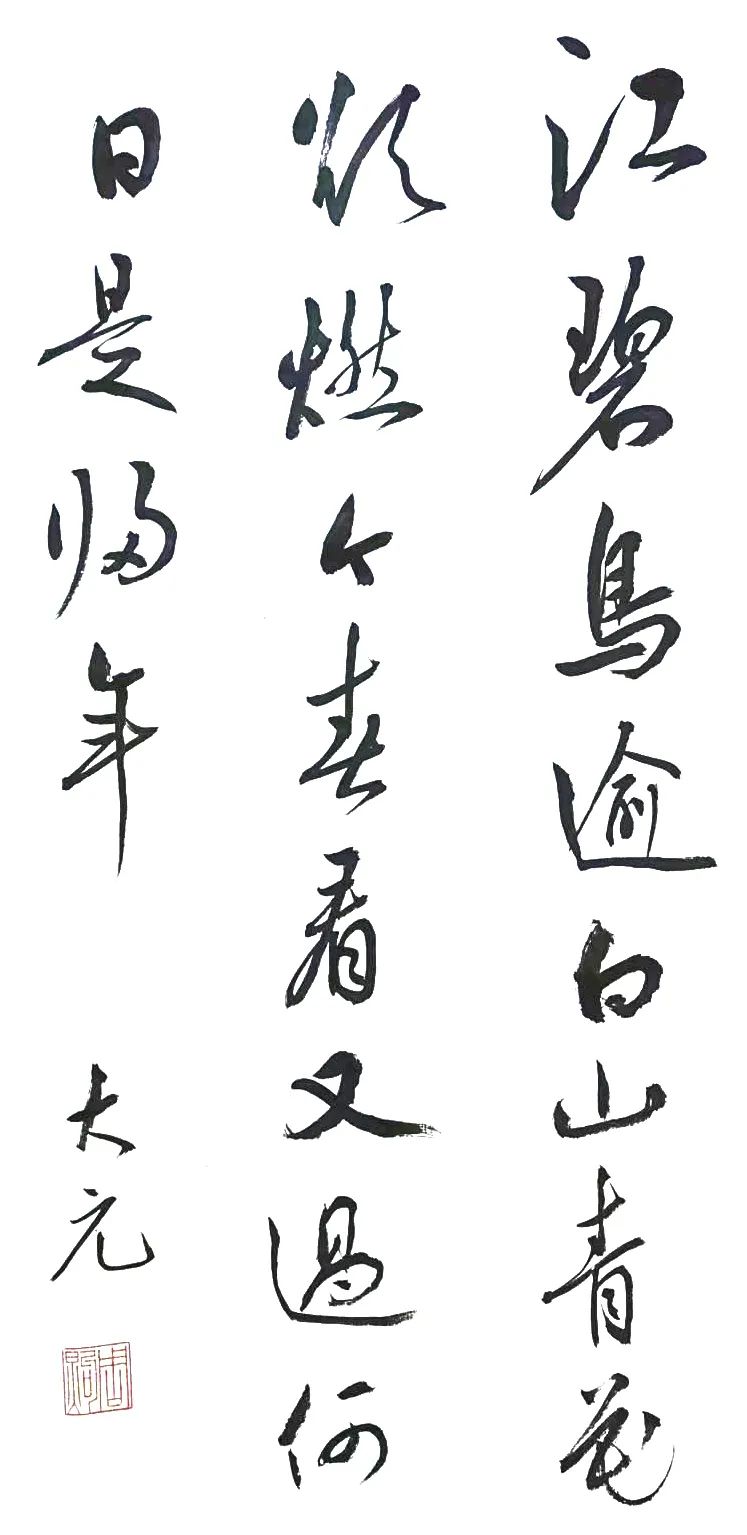 江碧鳥逾白山青花
欲燃今春看又過何
日是归年
大元